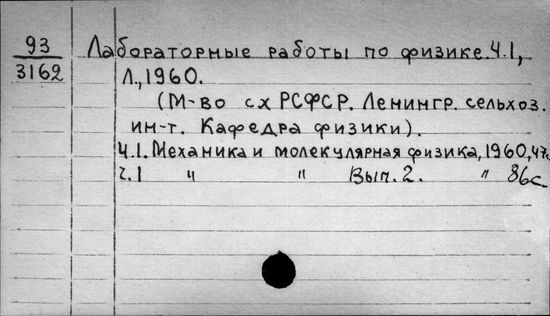 93 Лабораторные работы по физике. Ч.1,
3162 Л., 1960.
(М-во сх РСФСР. Ленингр. сельхоз.
ин-т. Кафедра физики).
Ч.1. Механика и молекулярная физика, 1960, 47с
ч.1 " " Вып. 2. " 86с.